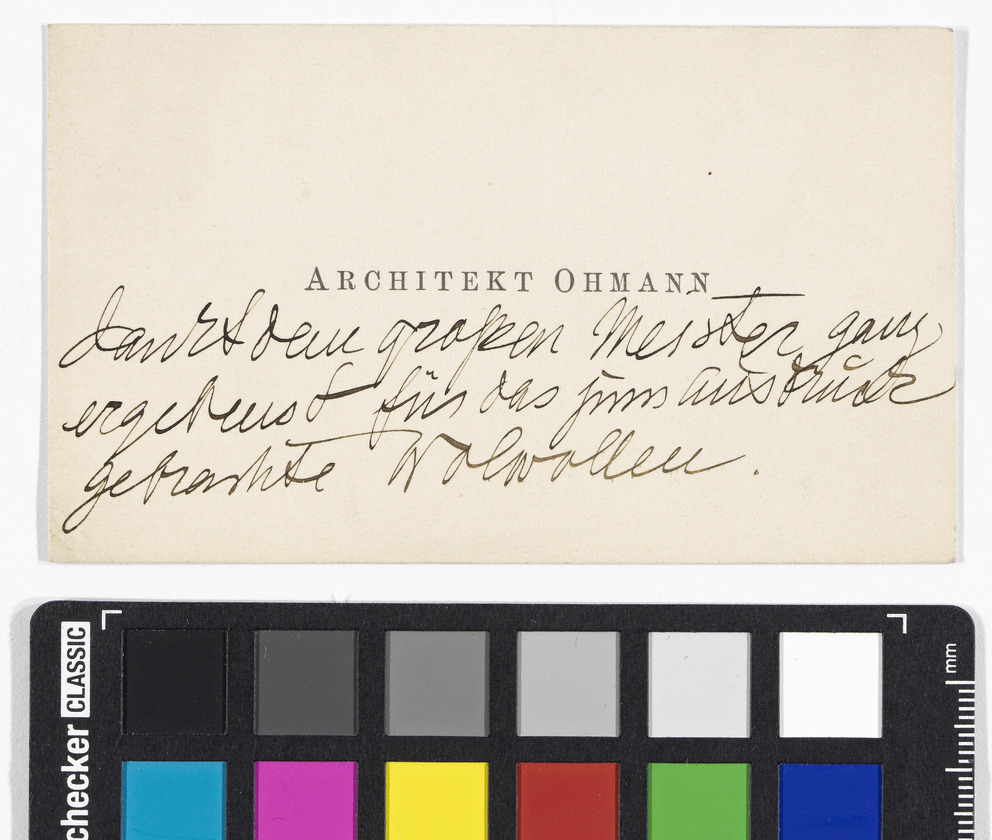 ARCHITEKT OHMANN
dankt dem großen Meister ganz
ergebenst für das zum Ausdruck
gebrachte Wolwollen.
checker CLASSIC
mm